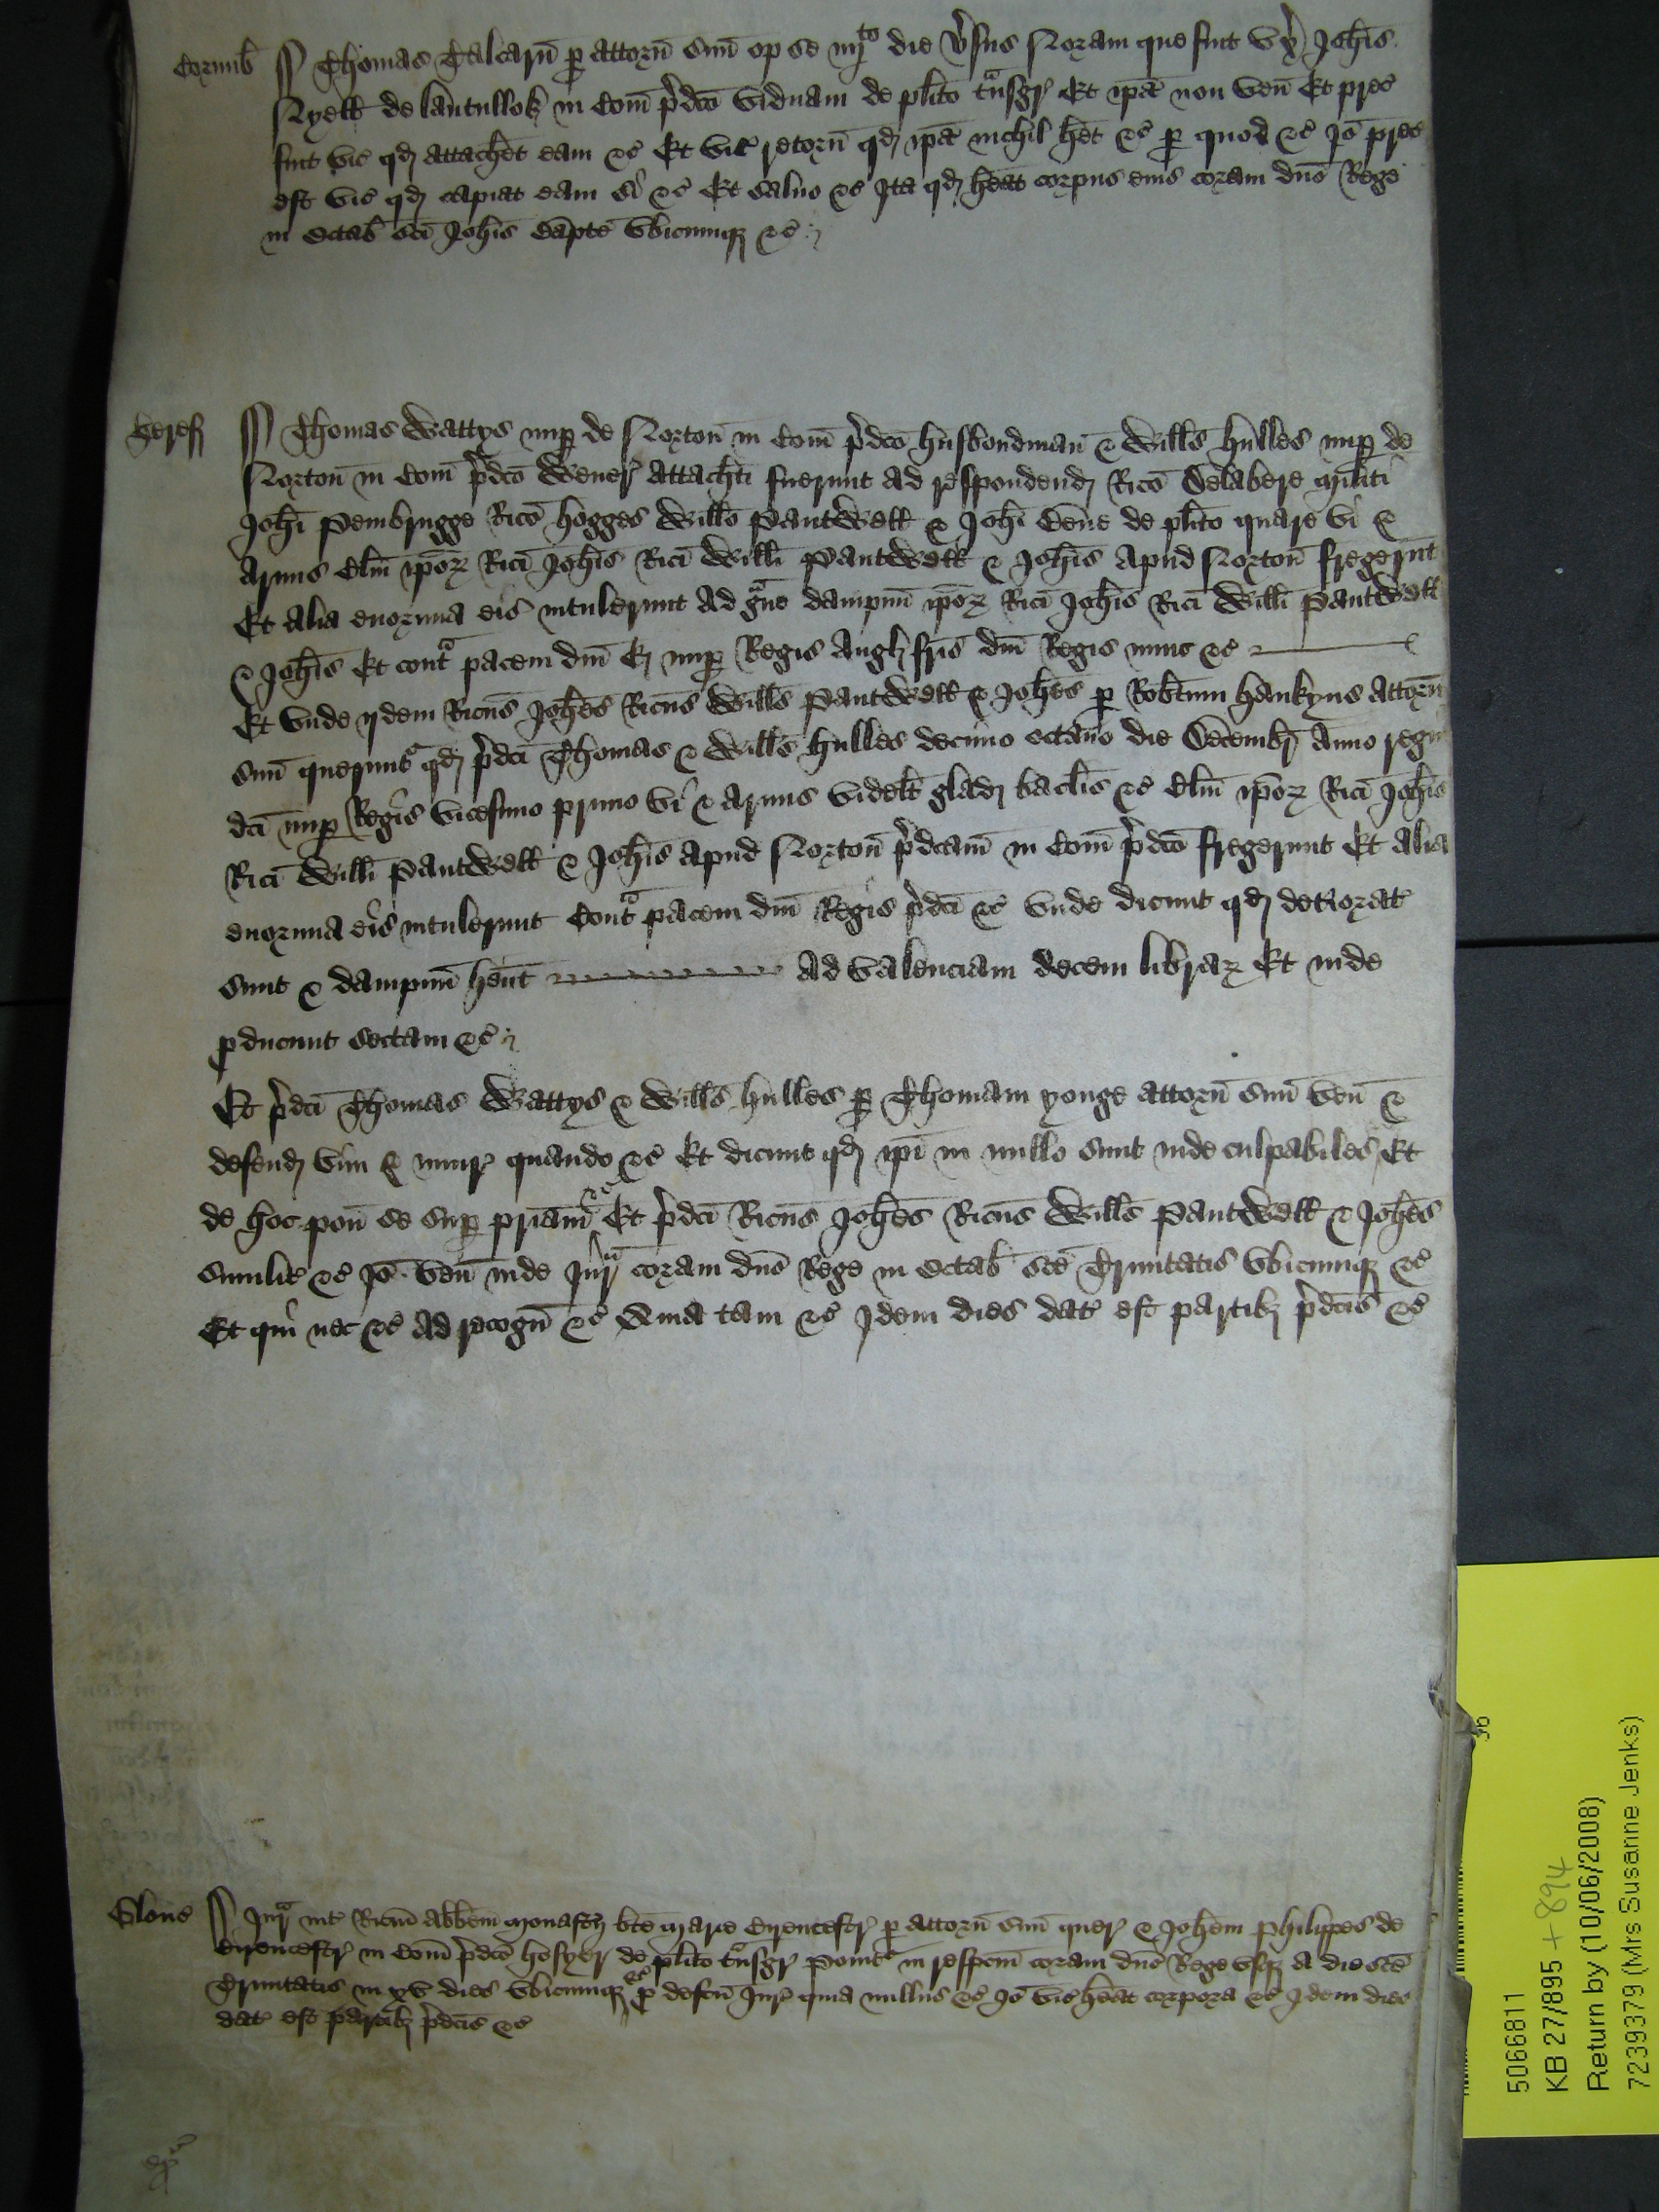 Cornub Thomas Talcarn̄ ꝑ attorn̄ suū op se iiijto die v̓sus Noram que fuit vx̓ Joh̄is
Nyell de lantullok in Com̄ p̓dc̄o viduam de pl̄ito t̃nsgr̄ Et ip̄a non ven̄ Et prec̄
fuit vic̄ qd̄ attach̄et eam ⁊c̄ Et vic̄ retorn̄ qd̄ ip̄a nichil h̄et ⁊c̄ ꝑ quod ⁊c̄ Jō prec̄
est vic̄ qd̄ capiat eam si ⁊c̄ Et saluo ⁊c̄ Ita qd̄ h̄eat corpus eius coram dn̄o Rege
in Octab̄ sc̄i Joh̄is Bap̄te vbicumqꝫ ⁊c̄
Heref Thomas Wattys nuꝑ de Norton̄ in Com̄ p̓dc̄o husbondman ⁊ Will̄s hulles nuꝑ de
Norton̄ in Com̄ p̓dc̄o Weuer̄ Attach̄ti fuerunt Ad respondend̄ Ric̄o Delabere militi
Joh̄i Pembrugge Ric̄o hogges Will̄o Pantwall ⁊ Joh̄i Dene de pl̄ito quare vi ⁊
Armis Clm̄ ip̄oꝝ Ric̄i Joh̄is Ric̄i Will̄i Pantwall ⁊ Joh̄is Apud Norton̄ fregerunt
Et Alia enormia eis intulerunt Ad g̃ue dampnū ip̄oꝝ Ric̄i Joh̄is Ric̄i Will̄i Pantwall
⁊ Joh̄is Et cont̃ pacem dn̄i E nuꝑ Regis Angl̄ fr̄is dn̄i Regis nunc ⁊c̄
Et vnde ijdem Ric̄us Joh̄es Ric̄us Will̄s Pantwall ⁊ Joh̄es ꝑ Rob̄tum hankyns Attorn̄
suū querunt᷑ qd̄ p̓dc̄i Thomas ⁊ Will̄s hulles decimo octauo die Decembr̄ Anno regni
dc̄i nuꝑ Regis vicesimo primo vi ⁊ Armis videlt̄ glad̄ bacl̄is ⁊c̄ Clm̄ ip̄oꝝ Ric̄i Joh̄is
Ric̄i Will̄i Pantwall ⁊ Joh̄is apud Norton̄ p̓dc̄am in Com̄ p̓dc̄o fregerunt Et Alia
enormia eis intulerunt Cont̃ pacem dn̄i Regis p̓dc̄i ⁊c̄ vnde dicunt qd̄ det̓iorat᷑
sunt ⁊ dampnū h̄ent Ad valenciam decem libraꝝ Et inde
ꝓducunt sectam ⁊c̄
Et p̓dc̄i Thomas Wattys ⁊ Will̄s hulles ꝑ Thomam yonge attorn̄ suū ven̄ ⁊
defend̄ vim ⁊ iniur̄ quando ⁊c̄ Et dicunt qd̄ ip̄i in nullo sunt inde culpabiles Et
de hoc pon̄ se suꝑ pr̄iam ⁊c̄ Et p̓dc̄i Ric̄us Joh̄es Ric̄us Will̄s Pantwall ⁊ Joh̄es
similit̄ ⁊c̄ Jō ven̄ inde Jur̃ coram dn̄o Rege in Octab̄ sc̄e Trinitatis vbicumqꝫ ⁊c̄
Et qui nec ⁊c̄ Ad recogn̄ ⁊c̄ Quia tam ⁊c̄ Idem dies dat᷑ est partibꝫ p̓dc̄is ⁊c̄
Glouc̄ Jur̃ int̄ Ric̄um abb̄em Monast̄ij bt̄e Marie Cirencestr̄ ꝑ attorn̄ suū quer̄ ⁊ Joh̄em Philippes de
Cirencestr̄ in Com̄ p̓dc̄o hosyer de pl̄ito t̃nsgr̄ Ponit᷑ in resp̄cm̄ coram dn̄o Rege vsqꝫ A die sc̄e
Trinitatis in xv dies vbicumqꝫ ⁊c̄ ꝓ defc̄u Jur̄ quia nullus ⁊c̄ Jō vic̄ h̄eat corpora ⁊c̄ Idem dies
dat᷑ est partibꝫ p̓dc̄is ⁊c̄
5066811
KB 27/895 + 894
Return by (10/06/2008)
7239379 (Mrs Susanne Jenks)